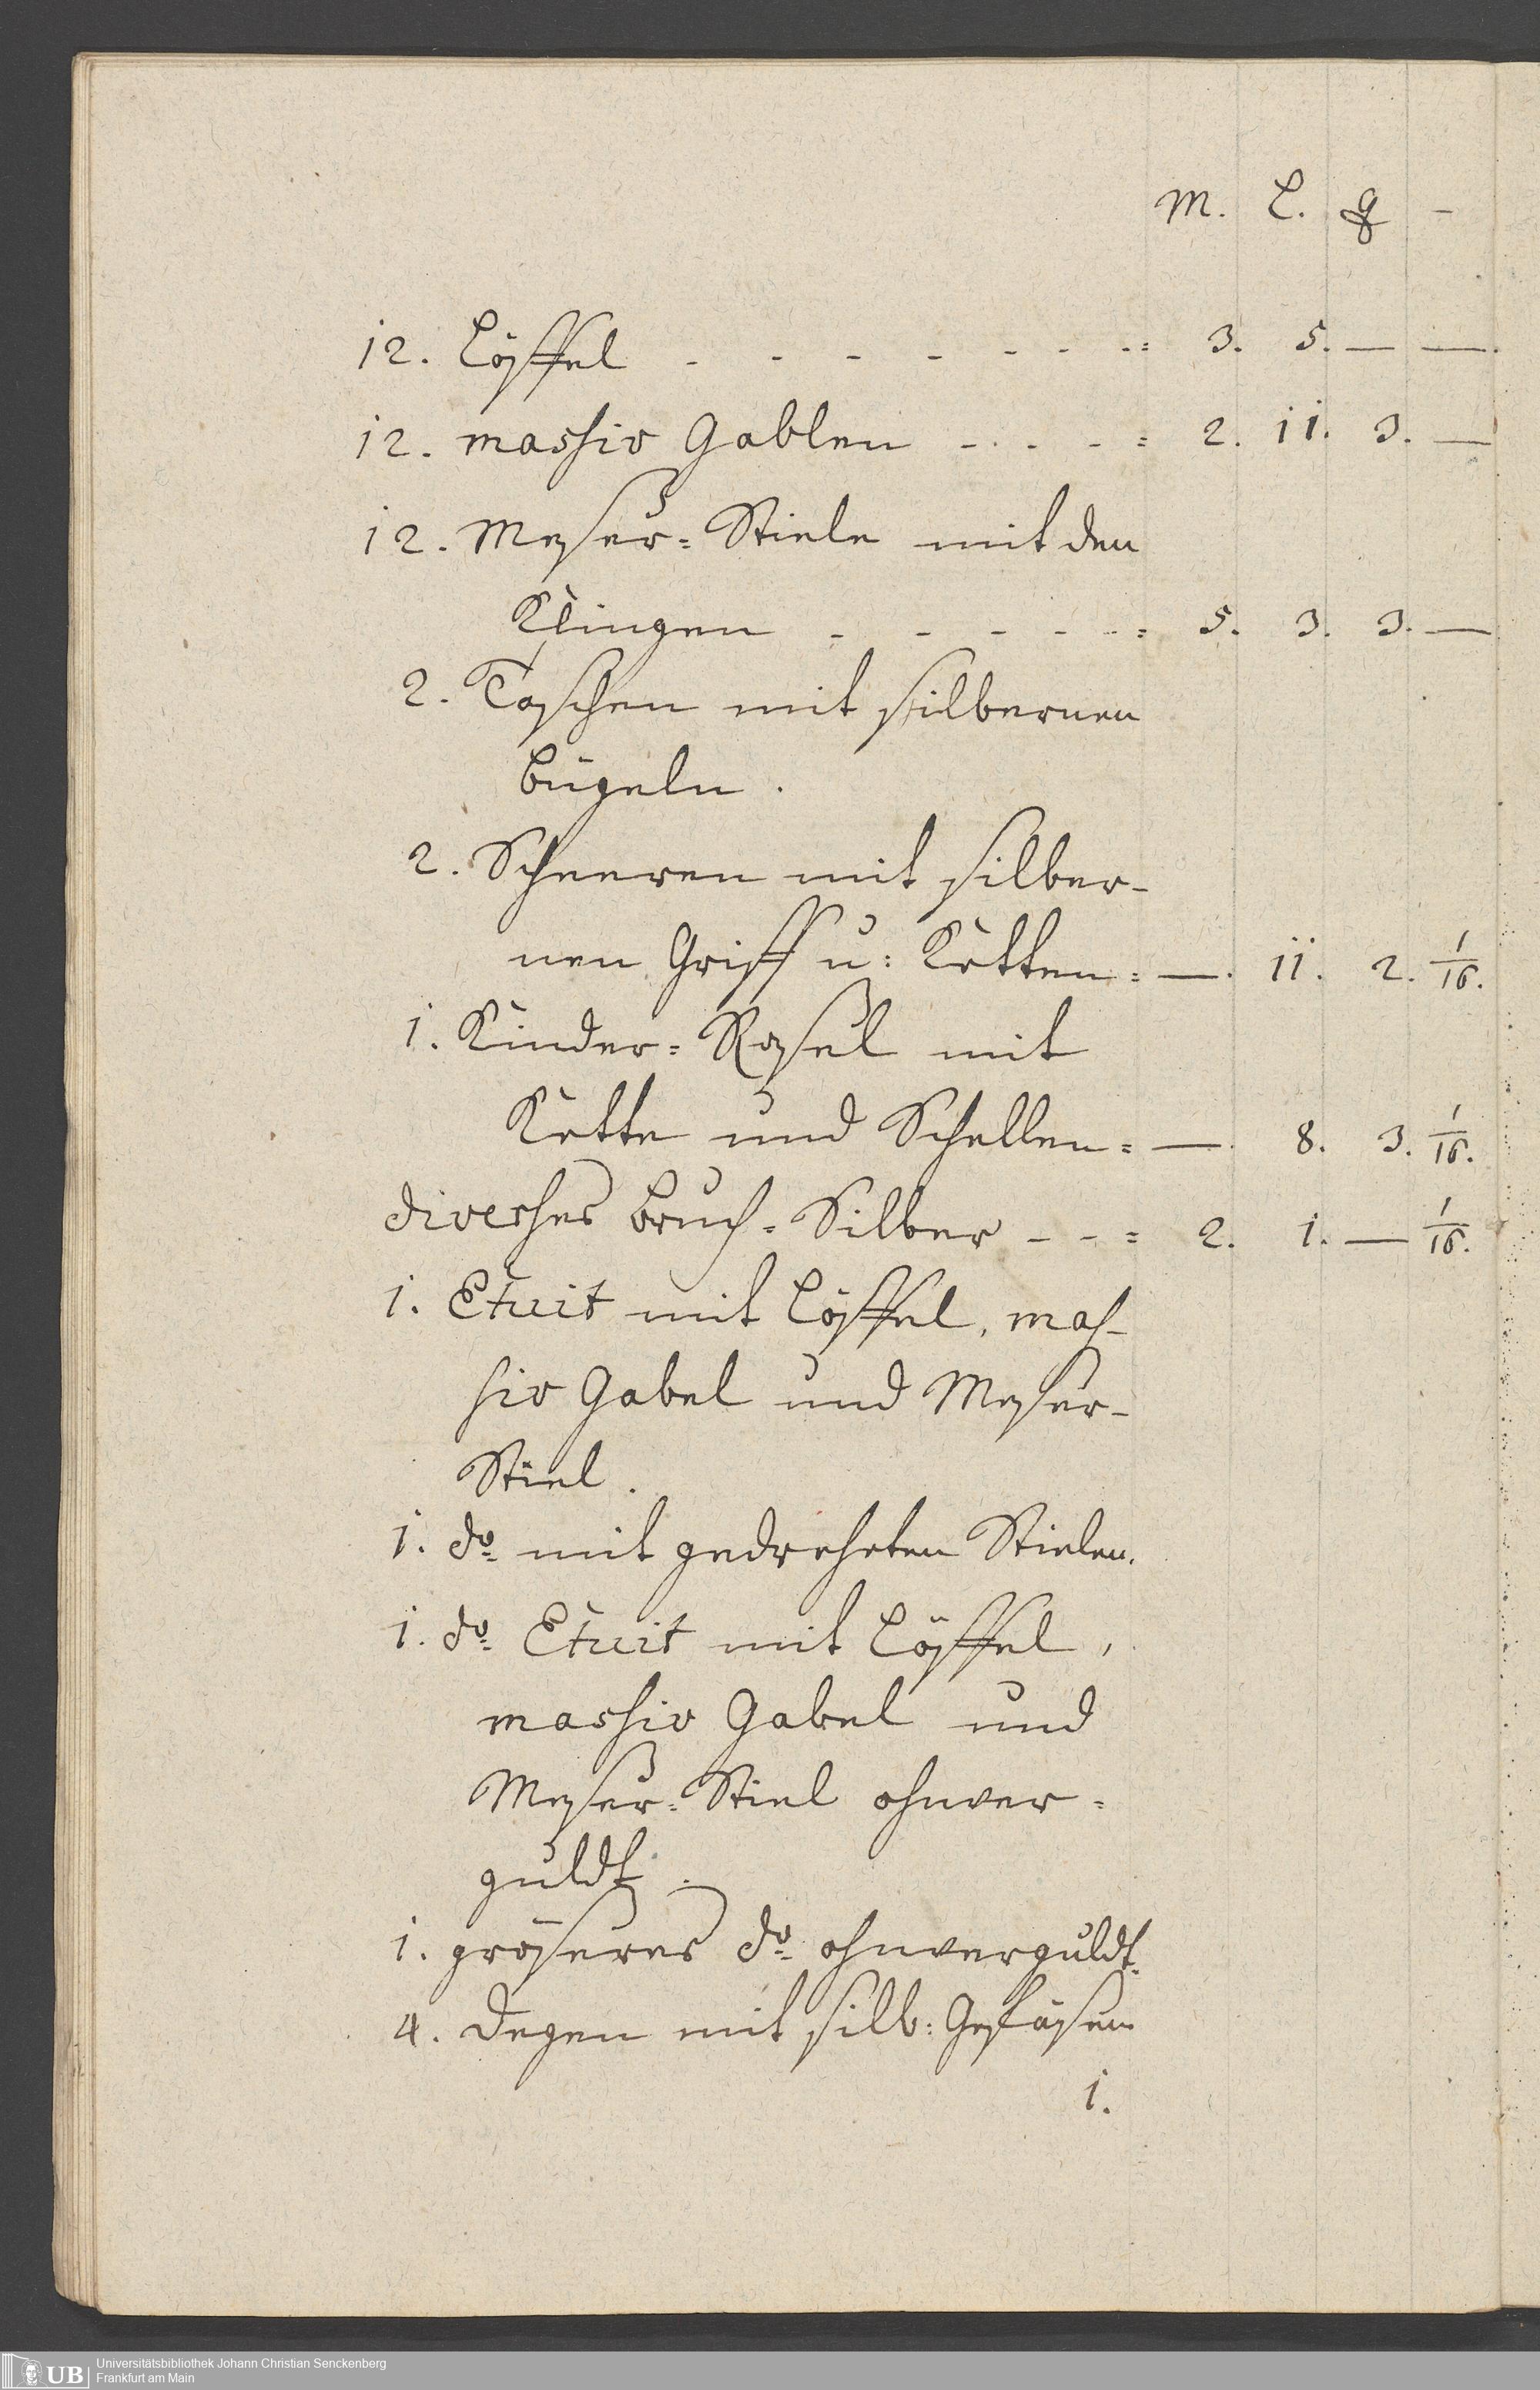 M. L. q -
12. Löffel - - - - - - -= 3. 5. — —.
12. massiv Gablen - . - - = 2. 11. 3. —
12. Messer= Stiele mit den
Klingen - - - - -= 5. 3. 3. —
2. Taschen mit silbernen
Bügeln.
2. Scheeren mit silber-
nen Griff u: Ketten = —. 11. 2. 1/16.
1. Kinder= Rassel mit
Kette und Schellen = —. 8. 3. 1/16.
diverses Bruch= Silber - - = 2. 1. — 1/16.
1. Etuit mit Löffel, mas-
siv Gabel und Messer-
Stiel.
1. do. mit gedreheten Stielen.
1. do. Etuit mit Löffel,
massiv Gabel und
Messer= Stiel ohnver=
guldt.
1. gröseres do. ohnverguldt.
4. Degen mit silb: Gefäsen
1.
UB Universitätsbibliothek Johann Christian Senckenberg
Frankfurt am Main